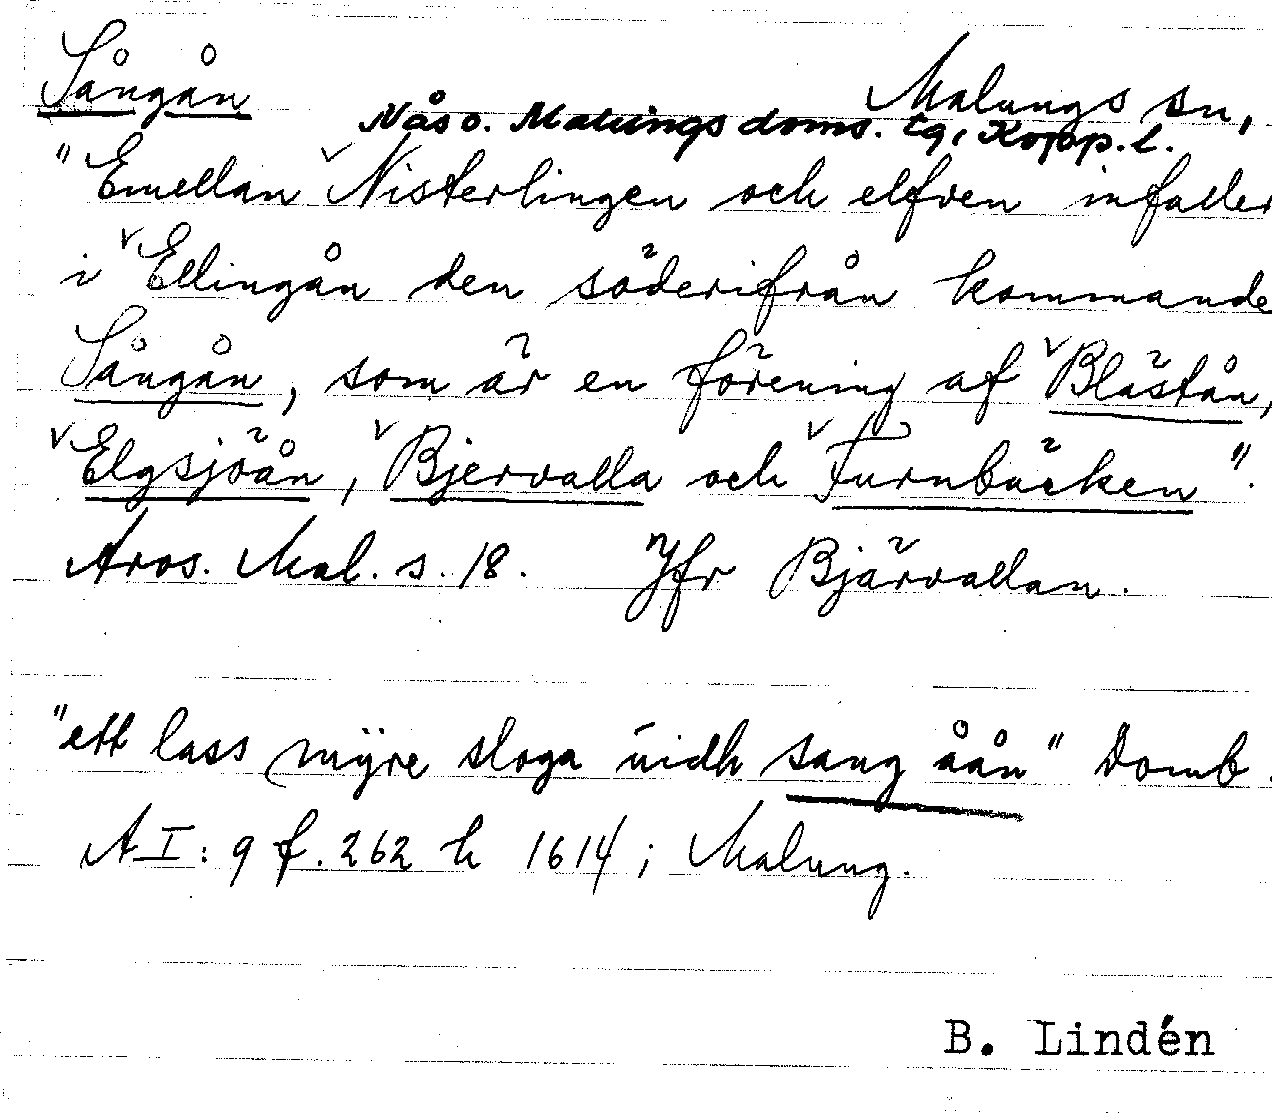 Sångån
Malungs sn,
Nås o. Malungs doms. tg, Kopp. l.
"Emellan Nisterlingen och elfven infaller
i Ellingån den söderifrån kommande
Sångån, som är en förening af Blästån,
Elgsjöån, Bjervalla och Furnbäcken".
Aros. Mal. s. 18. Jfr Bjärvallan.
"ett lass mÿre sloga uidh sang åån" Domb.
A I: 9 f. 262 h 1614; Malung.
B. Lindén